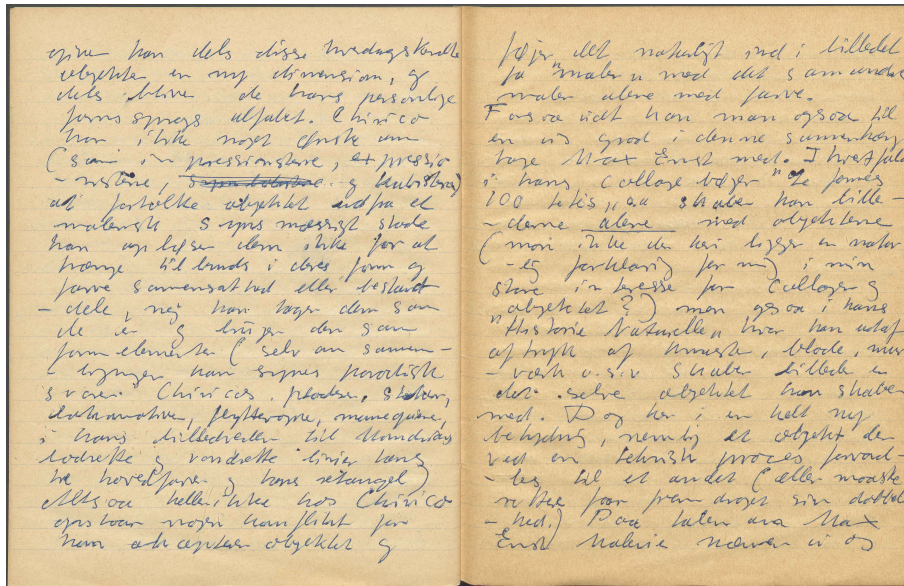 giver han dels disse hverdagskendte
objekter en ny dimension, og
dels bliver de hans personlige
formsprogs alfabet. Chirico
har ikke noget ønske om
(som impressionisterne, expressio
-nisterne, og kubisterne)
at fortolke objektet udfra et
malerisk synsmæssigt stade
han opløser dem ikke for at
trænge til bunds i deres form og
farve sammensathed eller bestand-
-dele, nej han tager dem som
de er og bruger dem som
formelementer (selv om sammen-
-ligningen kan synes paradoksk
svarer Chiricos pladser, statuer,
lokomotiver, mannequiner,
i hans billedverden til Mondrians
lodrette og vandrette linier hans
tre hovedfarver og hans rektangel)
Altsaa heller ikke hos Chirico
opstaar nogen konflikt for
han accepterer objektet og
føjer det naturligt ind i billedet
ja "maler" med det som andre
maler alene med farve.
Forsaavidt kan man ogsaa til
en vis grad i denne sammenhæng
tage Max Ernst med. I hvert fald
i hans collage bøger "Le femme
100 têtes" saa skaber han bille-
-derne alene med objekterne
(mon ikke der heri ligger en natur
-lig forklaring for mig i min
store interesse for collager og
objektet?) men ogsaa i hans
"Histoire Naturelle" hvor han udaf
aftryk af træ, blade, mur
-værk o.s.v skaber billede er
det selve objektet han skaber
med. Dog her i en helt ny
betydning, nemlig et objekt der
ved en teknisk proces forvand-
-les til et andet (eller maaske
rettere faar fremdraget sin dobbelt
-hed.) Paa talen om Max
Ernst Malerier nævner vi og